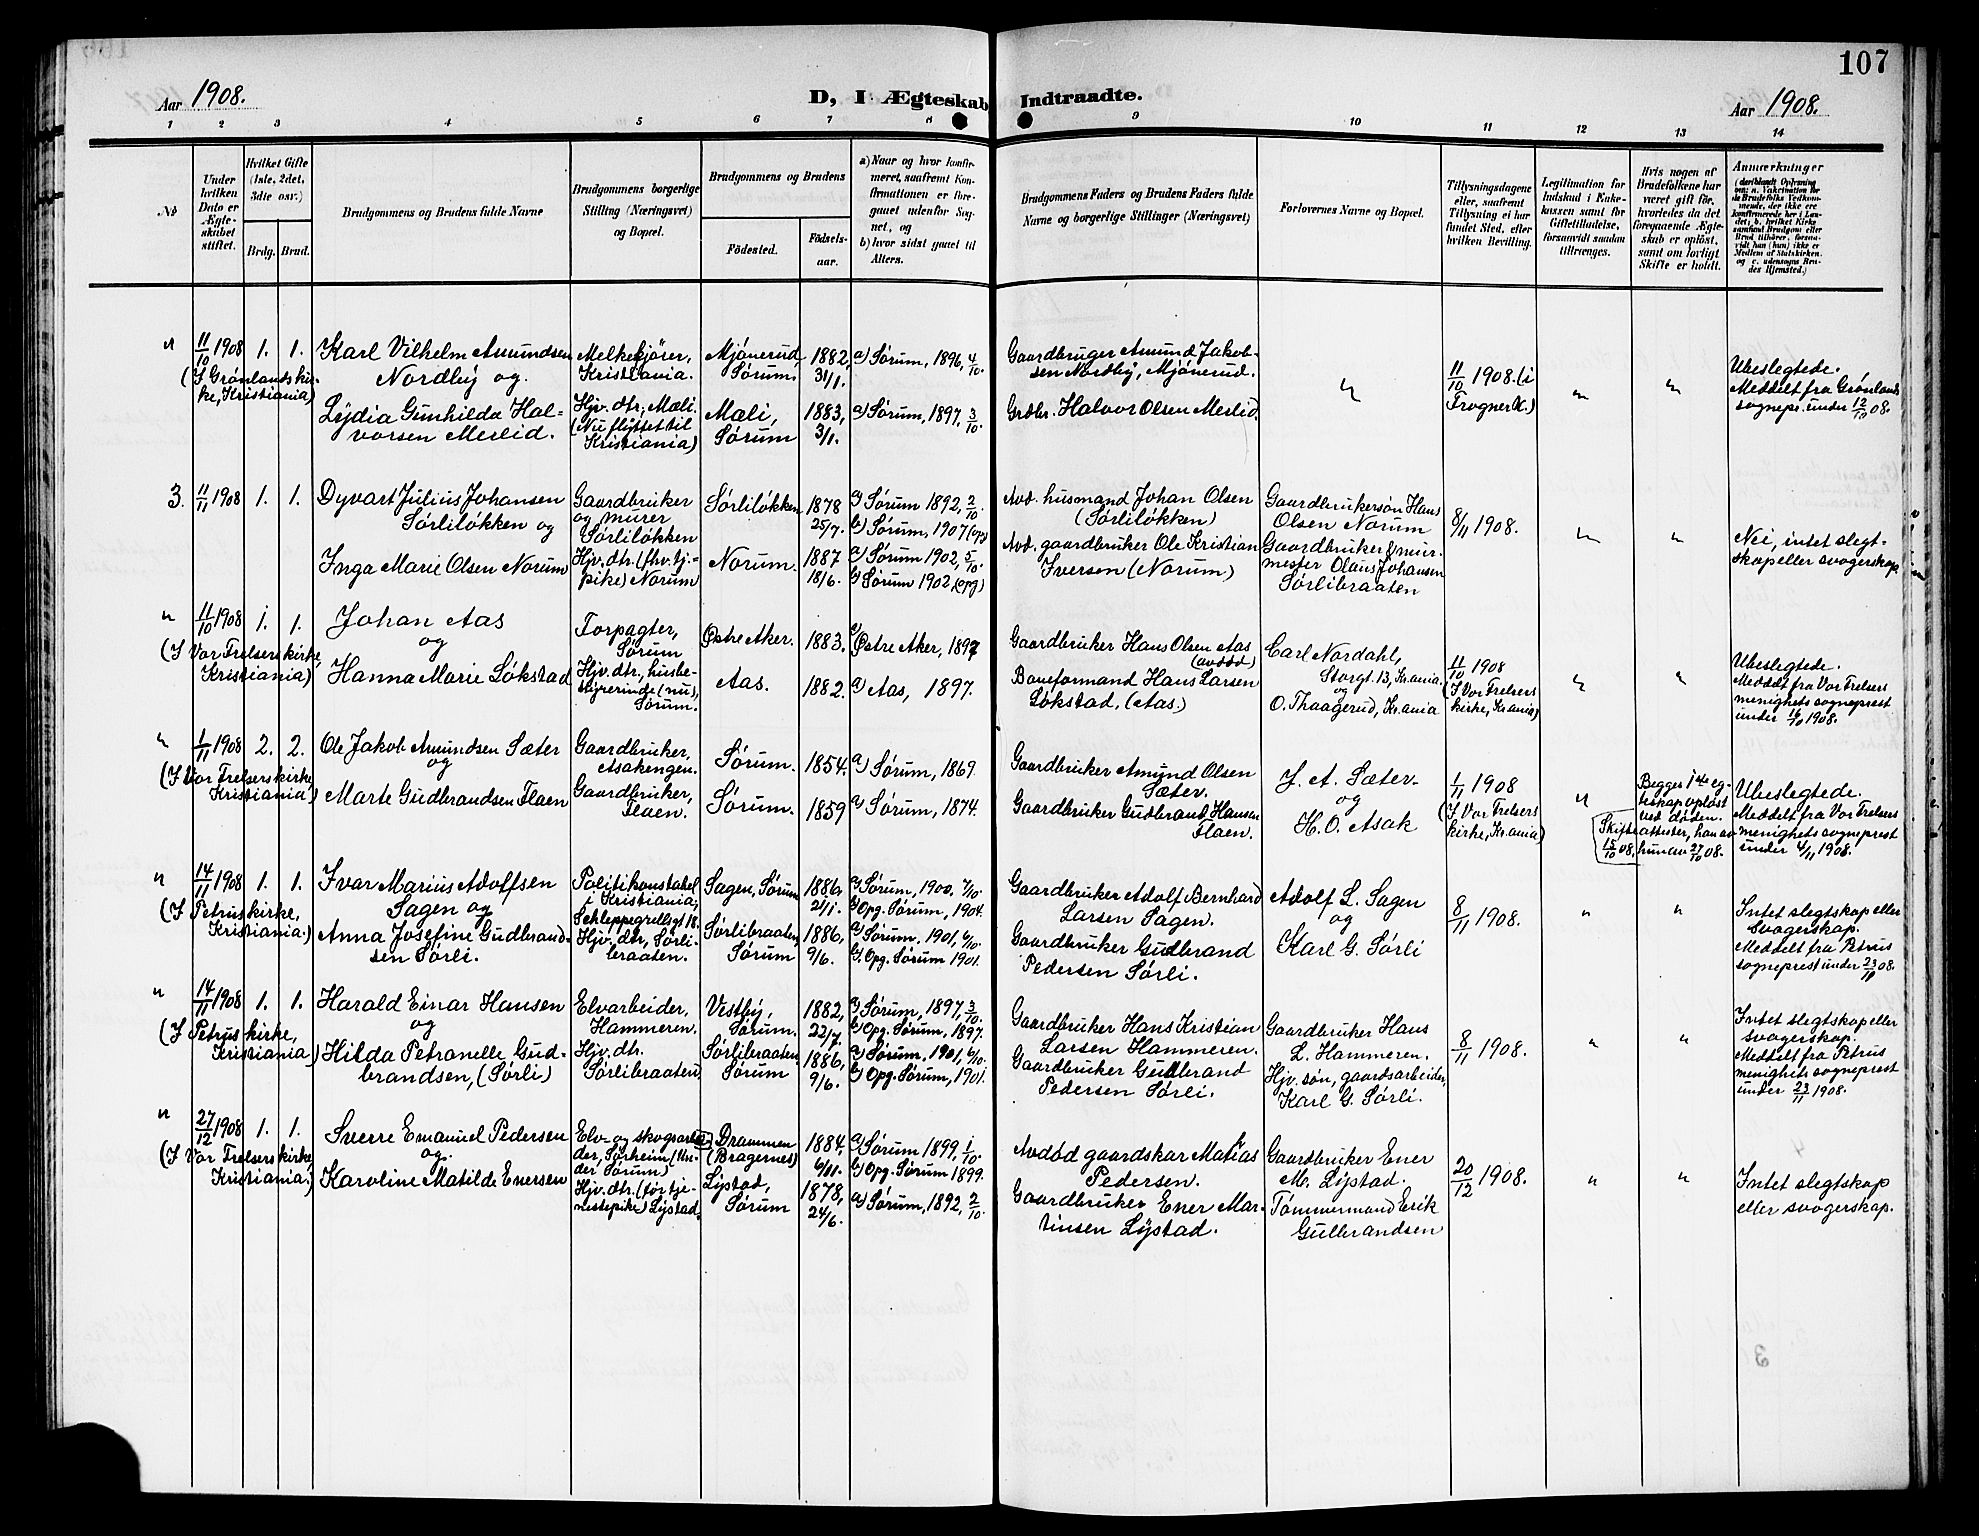 107
Aar 1908.
D, I Ægteskab Indtraadte.
Aar 1908.
1 2 3 4 5 6 7 8 9 10 11 12 13 14
No
Under hvilken Dato er Ægteskabet stiftet.
Hvilket Gifte (1ste, 2det, 3die osv.)
Brdg. Brud.
Brudgommens og Brudens fulde Navne
Brudgommens borgerlige Stilling (Næringsvei) og Bopæl.
Brudgommens og Brudens
Födested.
Födsels-aar.
a) Naar og hvor konfirmeret, saafremt Konfirmationen er foregaaet udenfor Sognet, og
b) hvor sidst gaaet til Alters.
Brudgommens Faders og Brudens Faders fulde Navne og borgerlige Stillinger (Næringsvei)
Forlovernes Navne og Bopæl.
Tillysningsdagene eller, saafremt Tillysning ei har fundet Sted, efter hvilken Bevilling.
Legitimation for Indskud i Enkekassen samt for Giftetilladelse, forsaavidt saadan tiltrænges.
Hvis nogen af Brudefolkene har været gift för, hvorledes da det foregaaende Ægteskab er oplöst, samt om lovligt Skifte er holdt.
Anmærkninger
(deriblandt Oplysning om: a. Vaksination for de Brudefolks Vedkommende, der ikke ere konfirmerede her i Landet; b. hvilket Kirkesamfund Brudgom eller Brud tilhörer, forsaavidt han (hun) ikke er Medlem af Statskirken, og c. udensogns Brudes Hjemsted.)
" 11/10 1908 1. 1.
(I Grønlands kirke, Kristiania)
Karl Vilhelm Amundsen
Nordby og
Melkekjører,
Kristiania.
Mjönerud,
Sørum.
1882,
31/1.
a) Sørum, 1896, 4/10.
Gaardbruger Amund Jakobsen Nordby, Mjönerud.
"
11/10 1908. (i
Frogner K.)
" "
Ubeslegtede.
Meddelt fra Grønlands
sognepr. under 12/10 08.
Lydia Gunhilda Halvorsen Meslid.
Hjv. dtr., Mæli.
(Nu flyttet til
Kristiania)
Mæli,
Sørum
1883,
3/1.
a) Sørum, 1897, 3/10.
Grdbr. Halvor Olsen Meslid.
3. 11/11 1908 1. 1.
Dyvart Julius Johansen
Sørliløkken og
Gaardbruker
og murer
Sørliløkken
Sørliløkken
1878
25/7.
a) Sørum 1892, 2/10.
b) Sørum, 1907 (opg)
Avd. husmand Johan Olsen
(Sørliløkken)
Gaardbrukersøn Hans
Olsen Norum
8/11 1908.
" "
Nei, intet slegtskap eller svogerskap
Inga Marie Olsen Norum
Hjv. dtr. (fhv. tj.-
pike) Norum
Norum.
1887
18/6.
a) Sørum 1902, 5/10.
b) Sørum 1902 (opg)
Avd. gaardbruker Ole Kristian
Iversen (Norum)
Gaardbruker & murmester Olaus Johansen
Sørlibraaten
" 11/10 1908 1. 1.
(I Vor Frelsers kirke,
Kristiania)
Johan Aas
og
Forpagter,
Sørum
Østre Aker. 1883.
a) Østre Aker, 1897
Gaardbruker Hans Olsen Aas
(avdød)
Carl Nordahl,
Storgt. 13, Kr.ania.
og
11/10 1908
(I Vor Frelsers
kirke, Kr.ania)
" "
Ubeslegtede.
Meddelt fra Vor Frelsers
menighets sogneprest
under 16/10 1908.
Hanna Marie Løkstad
Hjv. dtr., husbestyrerinde (nu),
Sørum.
Aas. 1882.
a) Aas, 1897.
Baneformand Hans Larsen
Løkstad, (Aas.)
O. Thaagerud, Kr.ania
" 1/11 1908 2. 2.
(I Vor Frelsers kirke,
Kristiania)
Ole Jakob Amundsen Sæter
og
Gaardbruker,
Asakengen.
Sørum. 1854.
a) Sørum, 1869.
Gaardbruker Amund Olsen
Sæter.
J. A. Sæter
og
1/11 1908
(I Vor Frelsers
kirke, Kr.ania)
"
Begges 1ste egteskap opløst
ved døden.
Skifteattester, han av
15/10 08, hun av 27/10 08.
Ubeslegtede.
Meddelt fra Vor Frelsers
menighets sogneprest
under 4/11 1908.
Marte Gudbrandsen Flaen
Gaardbruker,
Flaen.
Sørum. 1859
a) Sørum, 1874.
Gaardbruker Gudbrand Hansen
Flaen.
H. O. Asak
" 14/11 1908 1. 1.
(I Petrus kirke,
Kristiania.)
Ivar Marius Adolfsen
Sagen og
Politikonstabel
i Kristiania,
Schleppegrellsgt 18.
Sagen, Sørum
1886,
21/1.
a) Sørum, 1900. 7/10.
b) Opg. Sørum, 1904.
Gaardbruker Adolf Bernhard
Larsen Sagen.
Adolf L. Sagen
og
8/11 1908.
" "
Intet slegtskap eller
svogerskap.
Meddelt fra Petrus
sogneprest under 23/11 08.
Anna Josefine Gudbrandsen Sørli.
Hjv. dtr, Sørlibraaten.
Sørlibraaten,
Sørum
1886,
9/6.
a) Sørum. 1901, 6/10.
b) Opg. Sørum 1901.
Gaardbruker Gudbrand
Pedersen Sørli.
Karl G. Sørli
" 14/11 1908 1. 1.
(I Petrus kirke,
Kristiania)
Harald Einar Hansen
og
Elvarbeider,
Hammeren.
Vestby,
Sørum.
1882,
22/7.
a) Sørum, 1897, 3/10.
b) Opg. Sørum, 1897.
Gaardbruker Hans Kristian
Larsen Hammeren.
Gaardbruker Hans
L. Hammeren.
8/11 1908.
" "
Intet slegtskap eller
svogerskap.
Meddelt fra Petrus
menighets sogneprest
under 23/11 1908.
Hilda Petronelle Gudbrandsen, (Sørli)
Hjv. dtr.
Sørlibraaten,
Sørlibraaten
Sørum
1886,
9/6.
a) Sørum, 1901, 6/10.
b) Opg. Sørum, 1901.
Gaardbruker Gudbrand
Pedersen Sørli.
Hjv. søn, gaardsarbeider,
Karl G. Sørli.
" 27/12 1908 1. 1.
(I Vor Frelsers kirke,
Kristiania.)
Sverre Emanuel Pedersen
og.
Elv- og skogsarbeider, Sørheim (under Sørum)
Drammen
(Bragernes)
1884,
6/11.
a) Sørum 1899, 1/10.
b) Opg. Sørum 1899.
Avdød gaardskar Mathias
Pedersen.
Gaardbruker Ener
M. Lystad.
20/12 1908.
" "
Intet slegtskap
eller svogerskap.
Karoline Matilde Enersen
Hjv. dtr. (før tjenestepike) Lystad,
Lystad,
Sørum
1878,
24/6.
a) Sørum, 1892, 2/10.
Gaardbruker Ener Martinsen Lystad.
Tømmermand Erik
Gulbrandsen